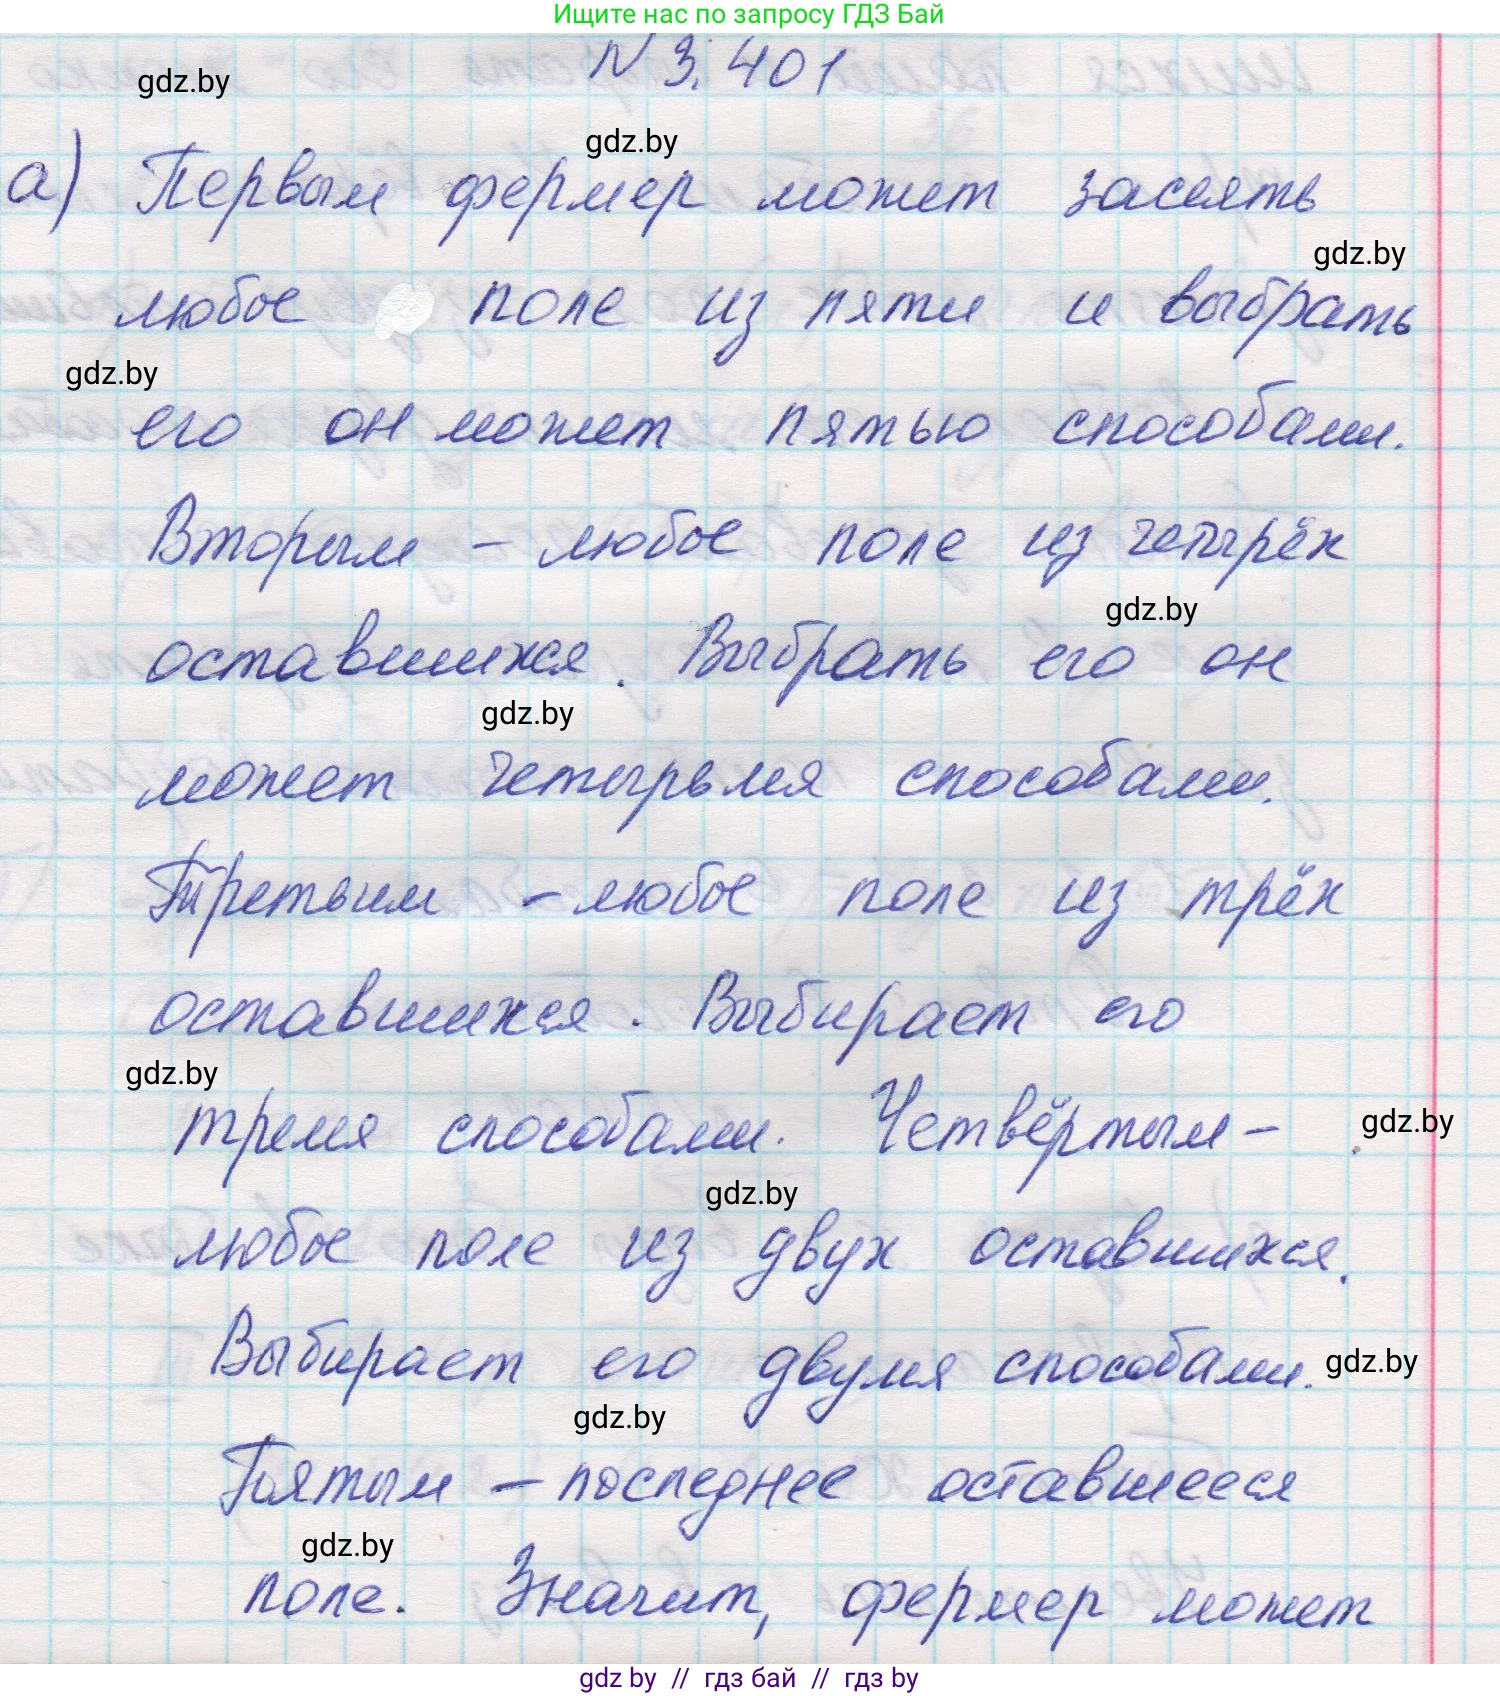 Ищите нас по запросу ГДЗ Бай
N 3.401
gdz.by
gdz.by
а) Первым фермер может засеять
gdz.by
любое поле из пяти и выбрать
gdz.by
его он может пятью способами.
Вторым - любое поле из четырёх
gdz.by
оставшихся. Выбрать его он
gdz.by
может четырьмя способами.
Третьим - любое поле из трёх
оставшихся. Выбирает его
gdz.by
тремя способами. Четвёртым -
gdz.by
gdz.by
любое поле из двух оставшихся.
Выбирает его двумя способами.
gdz.by
gdz.by
Пятым - последнее оставшееся
gdz.by
поле. Значит, фермер может
gdz by // гдз бай // гдз by